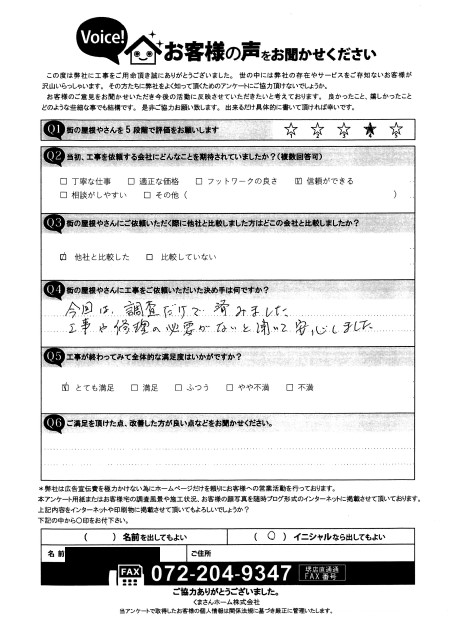 Voice!
お客様の声をお聞かせください
この度は弊社に工事をご用命頂き誠にありがとうございました。世の中には弊社の存在やサービスをご存知ないお客様が
沢山いらっしゃいます。その方たちに弊社をよく知って頂くためのアンケートにご協力頂けないでしょうか。
お客様のご意見をお聞かせいただき今後の活動に反映させていただきたいと考えております。良かったこと、嬉しかったこと
どのような些細な事でも結構です。是非ご協力お願い致します。出来るだけ具体的に書いて頂ければ幸いです。
Q1 街の屋根やさんを5段階で評価をお願いします ☆ ☆ ☆ ★ ☆
5 4
Q2 当初、工事を依頼する会社にどんなことを期待されていましたか?(複数回答可)
□ 丁寧な仕事 □ 適正な価格 □ フットワークの良さ ☑ 信頼ができる
□ 相談がしやすい □ その他( )
Q3 街の屋根やさんにご依頼いただく際に他社と比較しました方はどこの会社と比較しましたか?
☑ 他社と比較した □ 比較していない
Q4 街の屋根やさんに工事をご依頼いただいた決め手は何ですか?
今回は、調査だけで済みました
工事や修理の必要がないと聞いて安心しました
Q5 工事が終わってみて全体的な満足度はいかがですか?
☑ とても満足 □ 満足 □ ふつう □ やや不満 □ 不満
Q6 ご満足を頂けた点、改善した方が良い点などをお聞かせください。
*弊社は広告宣伝費を極力かけない為にホームページだけを頼りにお客様への営業活動を行っております。
本アンケート用紙またはお客様宅の調査風景や施工状況、お客様の顔写真を随時ブログ形式のインターネットに掲載させて頂いております。
上記内容をインターネットや印刷物に掲載させて頂いてもよろしいでしょうか?
下記の中から○印をお付下さい。
( ) 名前を出してもよい ( ○ ) イニシャルなら出してもよい
名前 ご住所
FAX 072-204-9347 堺店直通 FAX番号
ご協力ありがとうございました。
くまさんホーム株式会社
当アンケートで取得したお客様の個人情報は関係法規に基づき厳正に管理いたします。